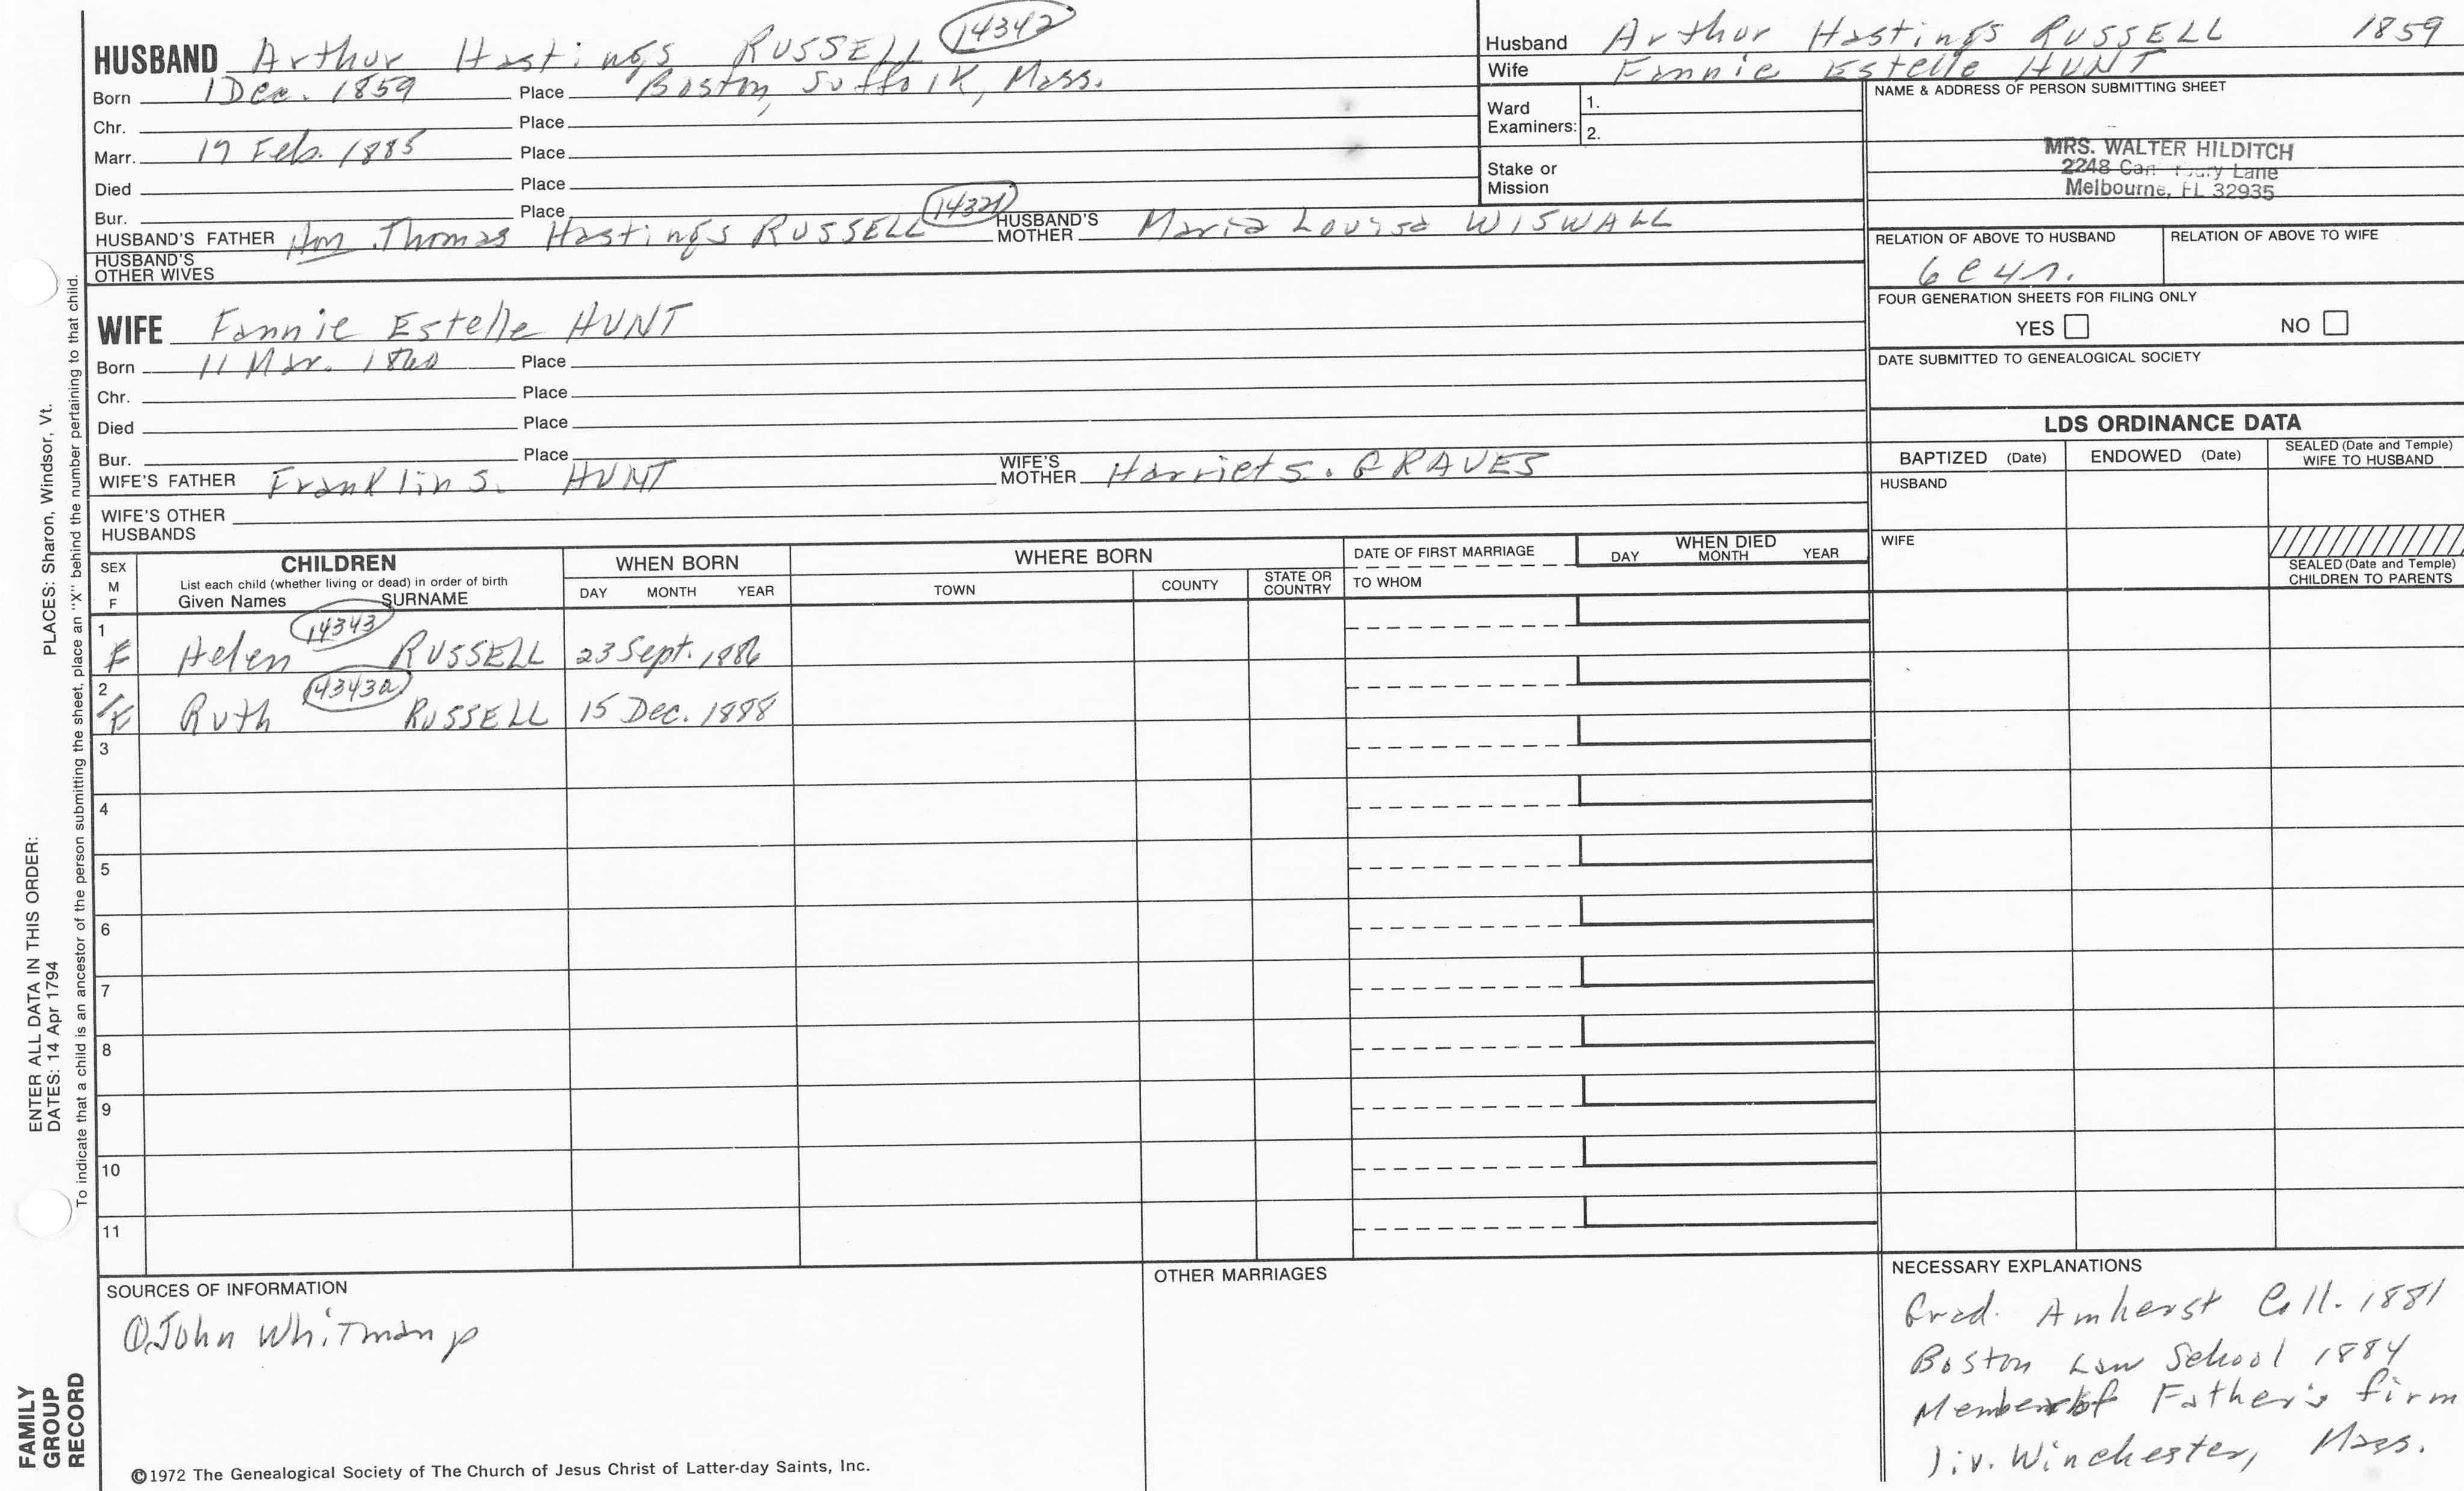 HUSBAND Arthur Hastings RUSSELL 14342
Born 1 Dec. 1859 Place Boston, Suffolk, Mass.
Chr. Place
Marr. 17 Feb. 1885 Place
Died Place
Bur. Place
HUSBAND'S FATHER Hon Thomas Hastings RUSSELL 14321 HUSBAND'S MOTHER Maria Louisa WISWALL
HUSBAND'S OTHER WIVES
WIFE Fannie Estelle HUNT
Born 11 Mar. 1860 Place
Chr. Place
Died Place
Bur. Place
WIFE'S FATHER Franklin S. HUNT WIFE'S MOTHER Harriet S. GRAVES
WIFE'S OTHER HUSBANDS
Husband Arthur Hastings RUSSELL 1859
Wife Fannie Estelle HUNT
Ward Examiners: 1.
2.
Stake or Mission
NAME & ADDRESS OF PERSON SUBMITTING SHEET
MRS. WALTER HILDITCH
2248 Lane
Melbourne, FL 32935
RELATION OF ABOVE TO HUSBAND RELATION OF ABOVE TO WIFE
6 C 4 r.
FOUR GENERATION SHEETS FOR FILING ONLY
YES NO
DATE SUBMITTED TO GENEALOGICAL SOCIETY
LDS ORDINANCE DATA
BAPTIZED (Date) ENDOWED (Date) SEALED (Date and Temple) WIFE TO HUSBAND
HUSBAND
WIFE
SEALED (Date and Temple) CHILDREN TO PARENTS
SEX M F
CHILDREN
List each child (whether living or dead) in order of birth
Given Names SURNAME
WHEN BORN
DAY MONTH YEAR
WHERE BORN
TOWN COUNTY STATE OR COUNTRY
DATE OF FIRST MARRIAGE
TO WHOM
WHEN DIED
DAY MONTH YEAR
1 F Helen 14343 RUSSELL 23 Sept. 1886
2 F Ruth 14343a RUSSELL 15 Dec. 1888
3
4
5
6
7
8
9
10
11
SOURCES OF INFORMATION
① John Whitman p
OTHER MARRIAGES
NECESSARY EXPLANATIONS
Grad. Amherst Coll. 1881
Boston Law School 1884
Member of Father's firm
liv. Winchester, Mass.
©1972 The Genealogical Society of The Church of Jesus Christ of Latter-day Saints, Inc.
FAMILY GROUP RECORD
ENTER ALL DATA IN THIS ORDER:
DATES: 14 Apr 1794
PLACES: Sharon, Windsor, Vt.
To indicate that a child is an ancestor of the person submitting the sheet, place an "X" behind the number pertaining to that child.